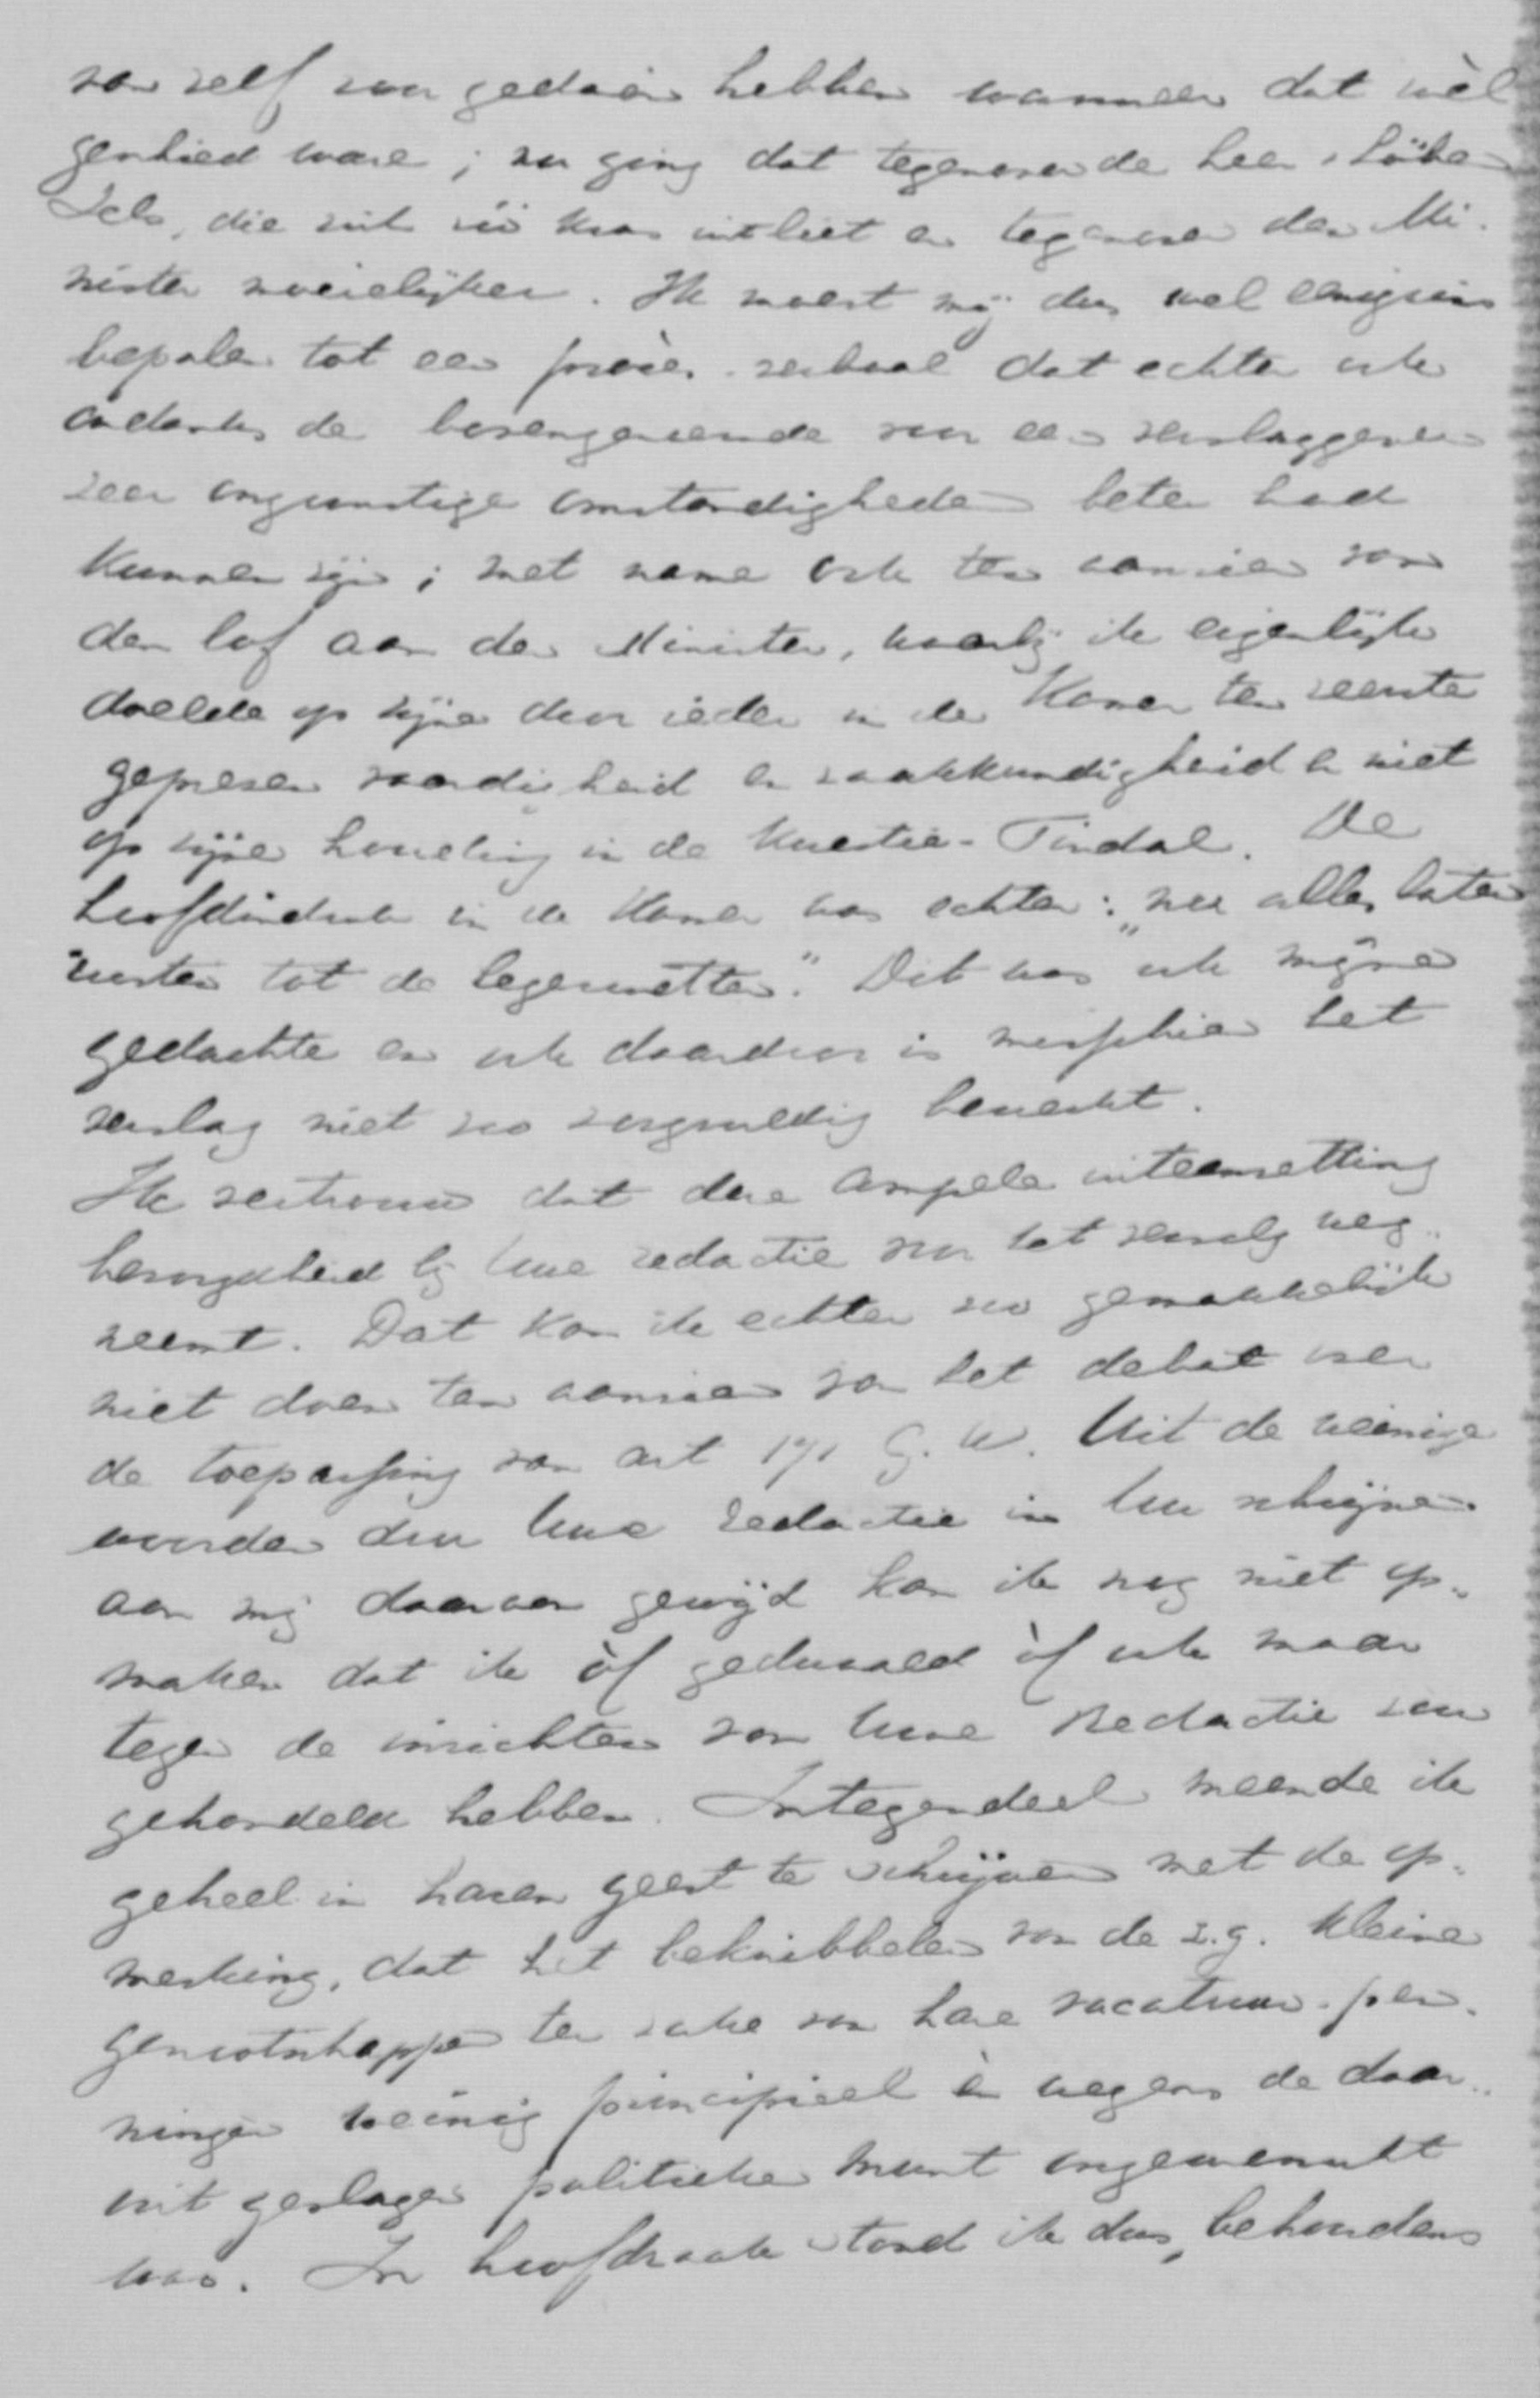 van zelf zou gedaan hebben wanneer dat wèl
geschied ware; nu ging dat tegenover de heer
die zich zóó kras uitliet en tegenover den Mi-
nister moeielijker. Ik moest mij dus wel eenigszins
bepalen tot een procès-verbaal dat echter ook
ondanks de voor een verslaggever
zeer ongunstige omstandigheden beter had
kunnen zijn; met name ook ten aanzien van
den lof aan den Minister, waarbij ik eigenlijk
doelde op zijne door ieder in de Kamer ten zeerste
geprezen vaardigheid en zaakkundigheid en niet
op zijne houding in de kwestie-Tindal. De
hoofdindruk in de Kamer was echter: „nu alles laten
rusten tot de legerwetten." Dit was ook mijne
gedachte en ook daardoor is misschien het
verslag niet zoo zorgvuldig bewerkt.
Ik vertrouw dat deze ampele uiteenzetting
bezorgdheid bij Uwe redactie voor het vervolg weg-
neemt. Dat kan ik echter zoo gemakkelijk
niet doen ten aanzien van het debat over
de toepassing van art 171 G.W. Uit de weinige
woorden door Uwe redactie in Uw schrijven
aan mij daaraan gewijd kan ik nog niet op-
maken dat ik òf gedwaald òf ook maar
tegen de inzichten van Uwe Redactie zou
gehandeld hebben. Integendeel meende ik
geheel in haren geest te schrijven met de op-
merking, dat het beknibbelen van de z.g. kleine
genootschappen ter zake van hare vacature-pen-
ningen weinig principieel èn wegens de daar-
uit geslagen politieke munt ongewenscht
was. In hoofdzaak stond ik dus, behoudens